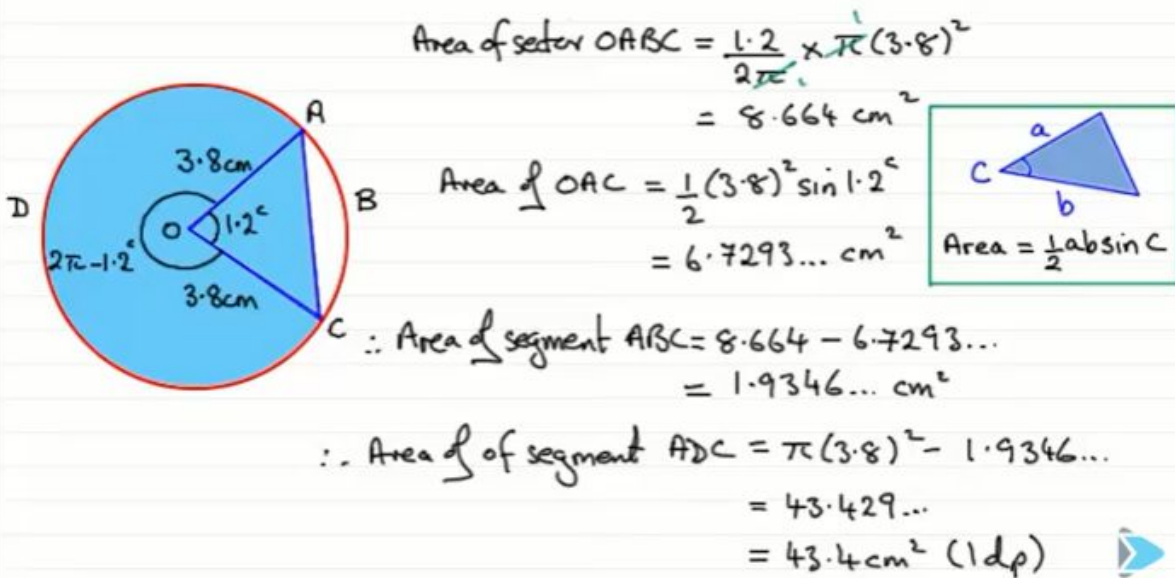 Area of sector OABC = 1.2/2π × π(3.8)²
= 8.664 cm²
Area of OAC = 1/2 (3.8)² sin 1.2ᶜ
= 6.7293... cm²
∴ Area of segment ABC = 8.664 − 6.7293...
= 1.9346... cm²
∴ Area of of segment ADC = π(3.8)² − 1.9346...
= 43.429...
= 43.4 cm² (1dp)
A
3.8cm
D
B
O
1.2ᶜ
2π−1.2ᶜ
3.8cm
C
a
C
b
Area = 1/2 ab sin C
1
1